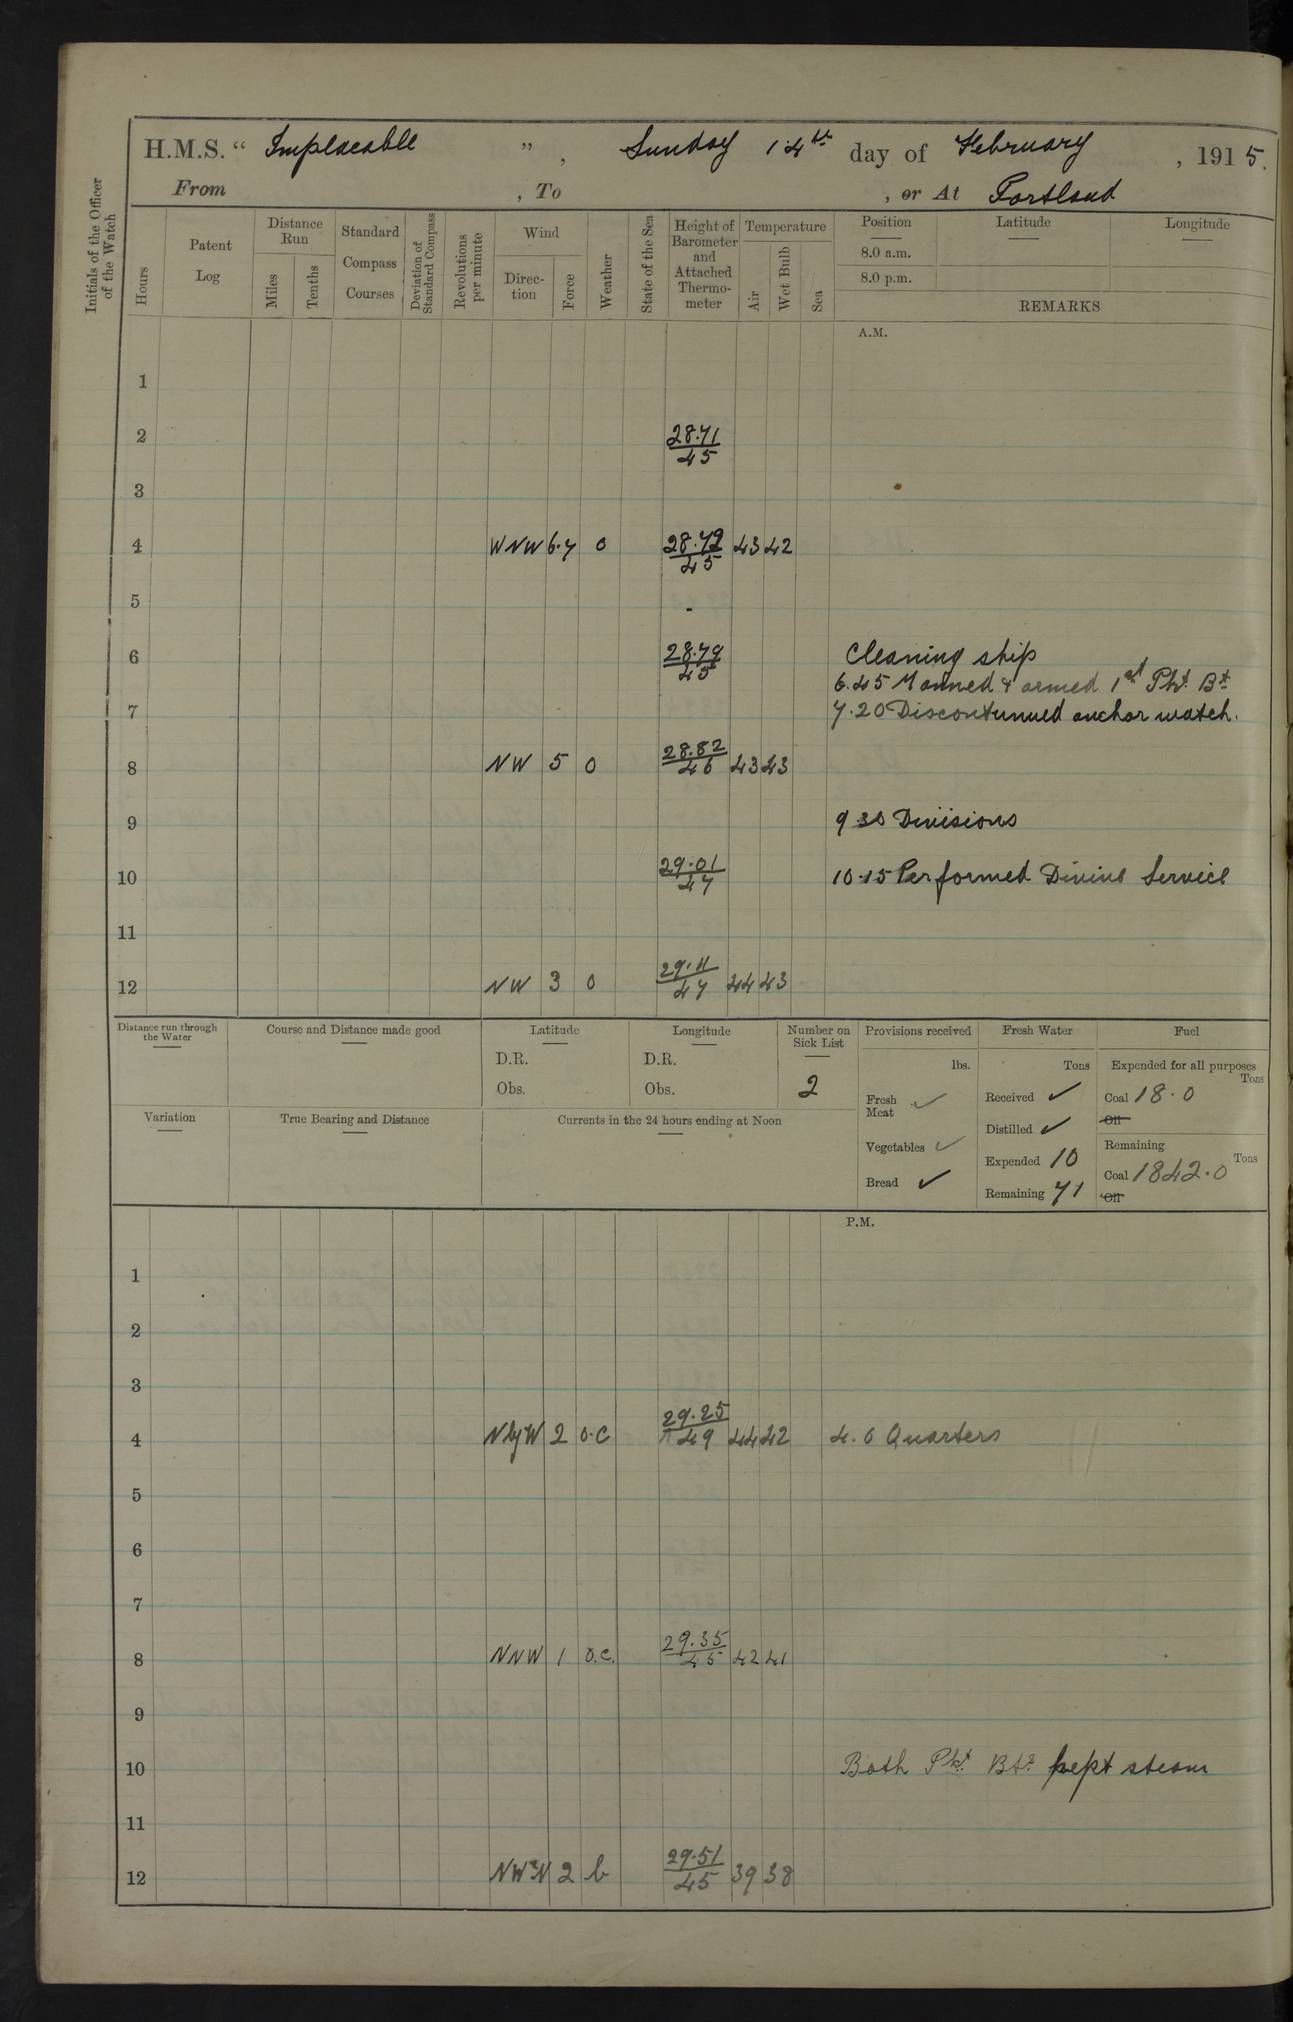 H.M.S. " Implacable ", Sunday 14th day of February, 1915.
From , To , or At Portland
Initials of the Officer of the Watch
Hours
Patent Log
Distance Run
Miles
Tenths
Standard Compass Courses
Deviation of Standard Compass
Revolutions per minute
Wind
Direction
Force
Weather
State of the Sea
Height of Barometer and Attached Thermometer
Temperature
Air
Wet Bulb
Sea
Position Latitude Longitude
8.0 a.m.
8.0 p.m.
REMARKS
A.M.
1
2 28.71 45
3
4 WNW 6.7 o 28.72 45 43 42
5 -
6 28.79 45 Cleaning ship
6.45 Manned & armed 1st Pkt Bt
7 7.20 Discontunued anchor watch.
8 NW 5 o 28.82 46 43 43
9 9 30 Divisions
10 29.01 47 10.15 Performed Divine Service
11
12 NW 3 o 29.11 47 44 43
Distance run through the Water
Course and Distance made good
Latitude
D.R.
Obs.
Longitude
D.R.
Obs.
Number on Sick List
2
Provisions received
lbs.
Fresh Meat ✓
Vegetables ✓
Bread ✓
Fresh Water
Tons
Received ✓
Distilled ✓
Expended 10
Remaining 71
Fuel
Expended for all purposes
Tons
Coal 18.0
Oil
Remaining
Tons
Coal 1842.0
Oil
Variation
True Bearing and Distance
Currents in the 24 hours ending at Noon
P.M.
1
2
3
4 NbyW 2 o.c 29.25 49 44 42 4.0 Quarters
5
6
7
8 NNW 1 o.c. 29.35 45 42 41
9
10 Both Pkt. Bts. kept steam
11
12 NWbN 2 b 29.51 45 39 38